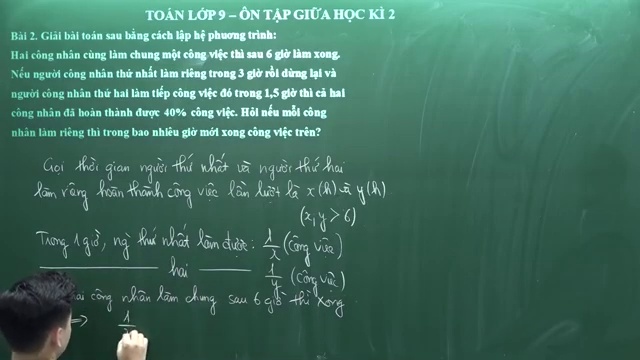 TOÁN LỚP 9 – ÔN TẬP GIỮA HỌC KÌ 2
Bài 2. Giải bài toán sau bằng cách lập hệ phương trình:
Hai công nhân cùng làm chung một công việc thì sau 6 giờ làm xong.
Nếu người công nhân thứ nhất làm riêng trong 3 giờ rồi dừng lại và
người công nhân thứ hai làm tiếp công việc đó trong 1,5 giờ thì cả hai
công nhân đã hoàn thành được 40% công việc. Hỏi nếu mỗi công
nhân làm riêng thì trong bao nhiêu giờ mới xong công việc trên?
Gọi thời gian người thứ nhất và người thứ hai
làm riêng hoàn thành công việc lần lượt là x (h) và y (h)
(x, y > 6)
Trong 1 giờ, ng thứ nhất làm được: 1/x (công việc)
hai 1/y (công việc)
công nhân làm chung sau 6 giờ thì xong
=> 1